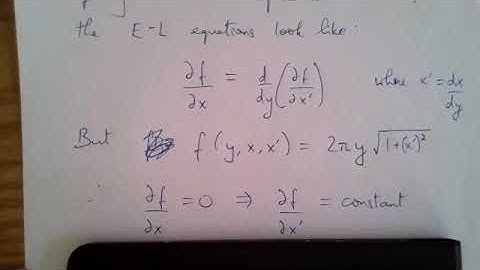 the E-L equations look like.
∂f/∂x = d/dy (∂f/∂x') where x' = dx/dy
But f(y, x, x') = 2πy √(1+(x')²)
∴ ∂f/∂x = 0 ⇒ ∂f/∂x' = constant